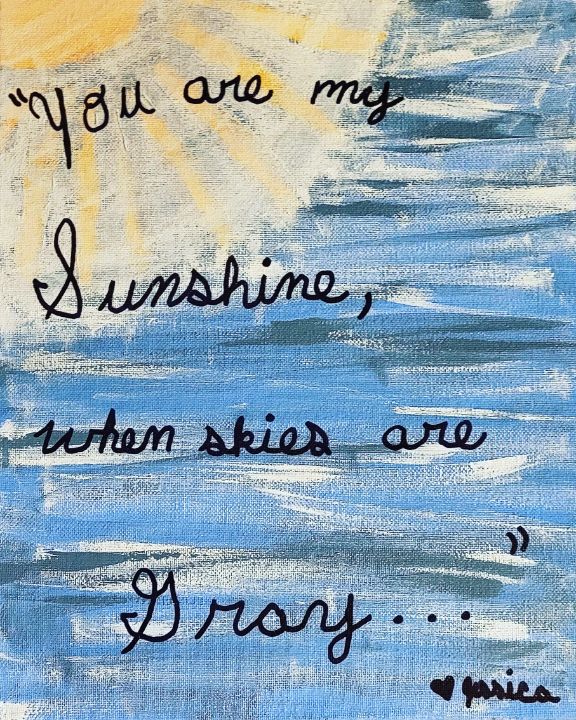 "You are my
Sunshine,
when skies are
Gray..."
♥ Jessica